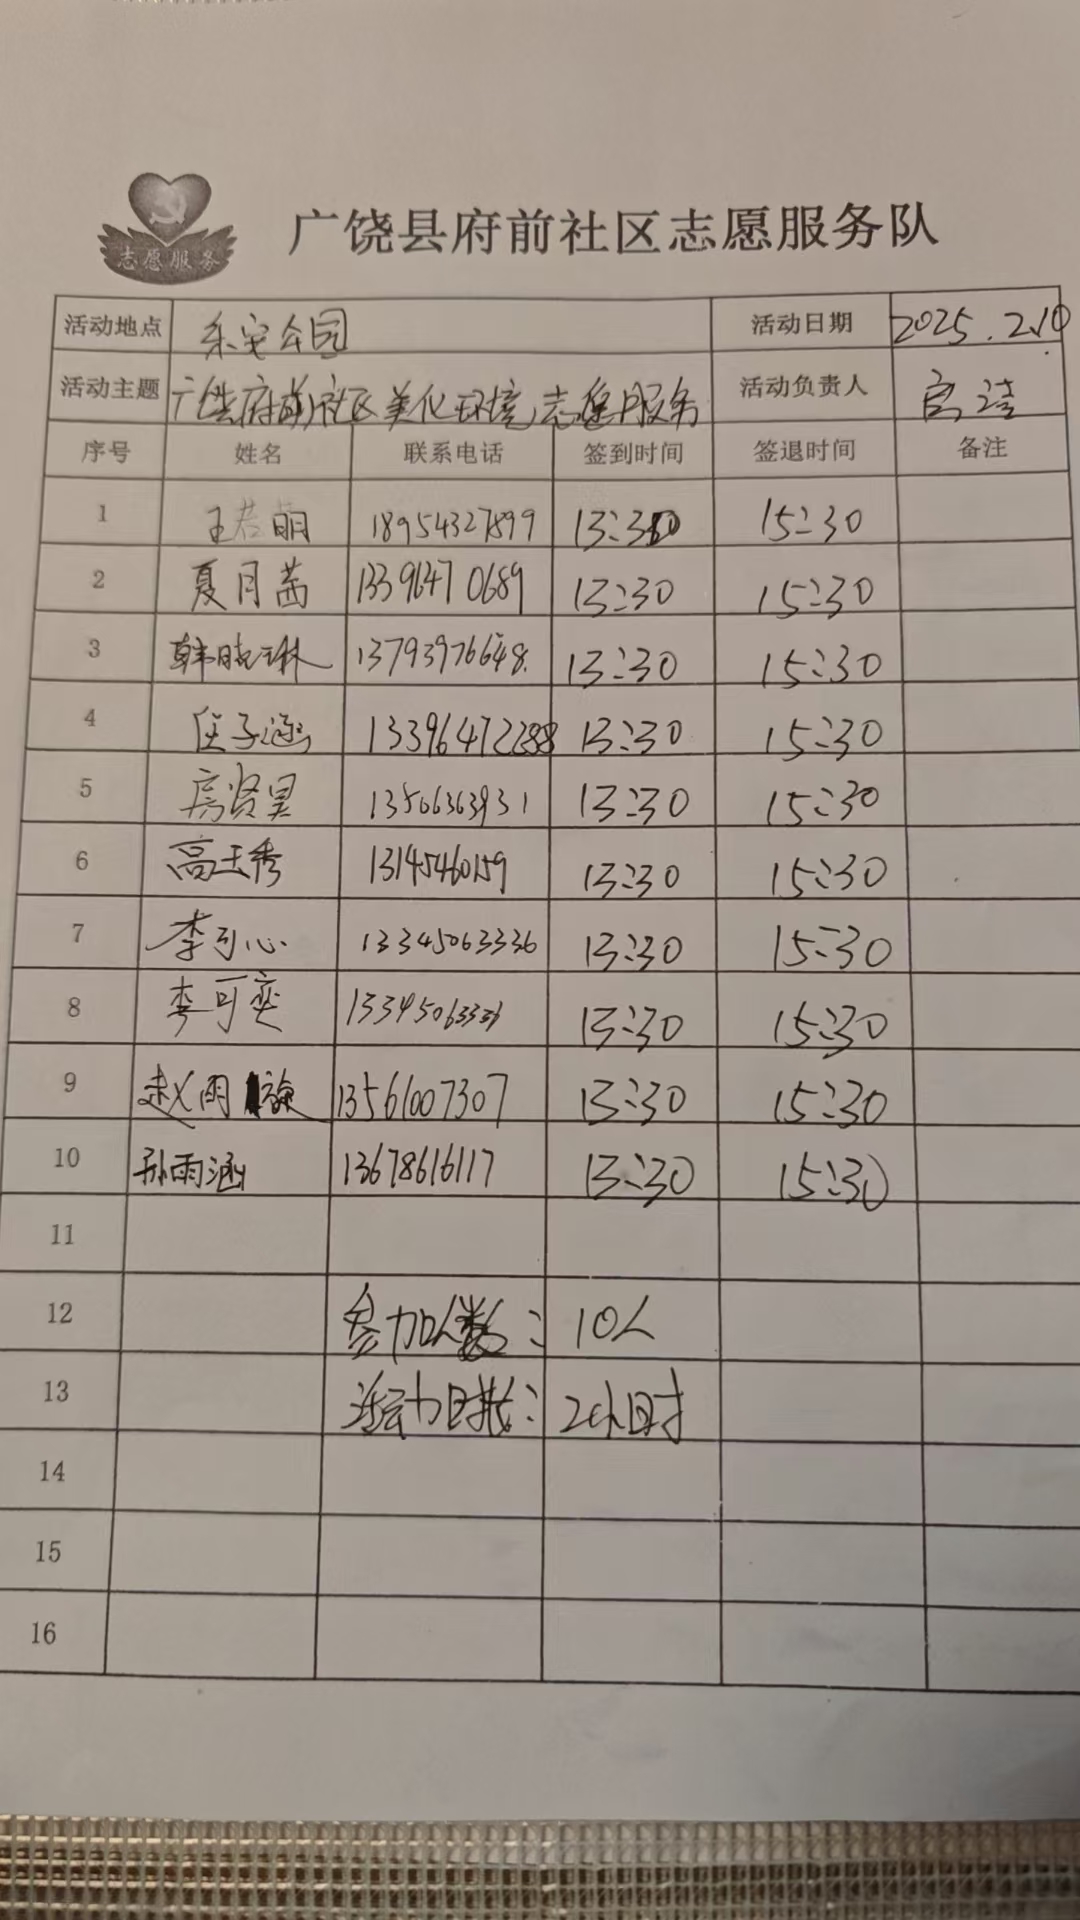 志愿服务
广饶县府前社区志愿服务队
活动地点 乐安公园 活动日期 2025.2.10
活动主题 广饶府前社区美化环境志愿服务 活动负责人
序号 姓名 联系电话 签到时间 签退时间 备注
1 王若萌 18954327899 13:30 15:30
2 夏月茜 13396470689 13:30 15:30
3 韩晓琳 13793976648 13:30 15:30
4 任子涵 13396472288 13:30 15:30
5 房贤昊 13506363931 13:30 15:30
6 高玉秀 13145460159 13:30 15:30
7 李可心 13345063336 13:30 15:30
8 李可奕 13345063336 13:30 15:30
9 赵雨旋 13561007307 13:30 15:30
10 孙雨涵 13678616117 13:30 15:30
11
12 参加人数: 10人
13 活动时长: 2小时
14
15
16